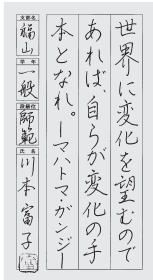 世界に変化を望むので
あれば、自らが変化の手
本となれ。ーマハトマ・ガンジー
支部名
福山
学年
一般
段級位
師範
氏名
川本富子